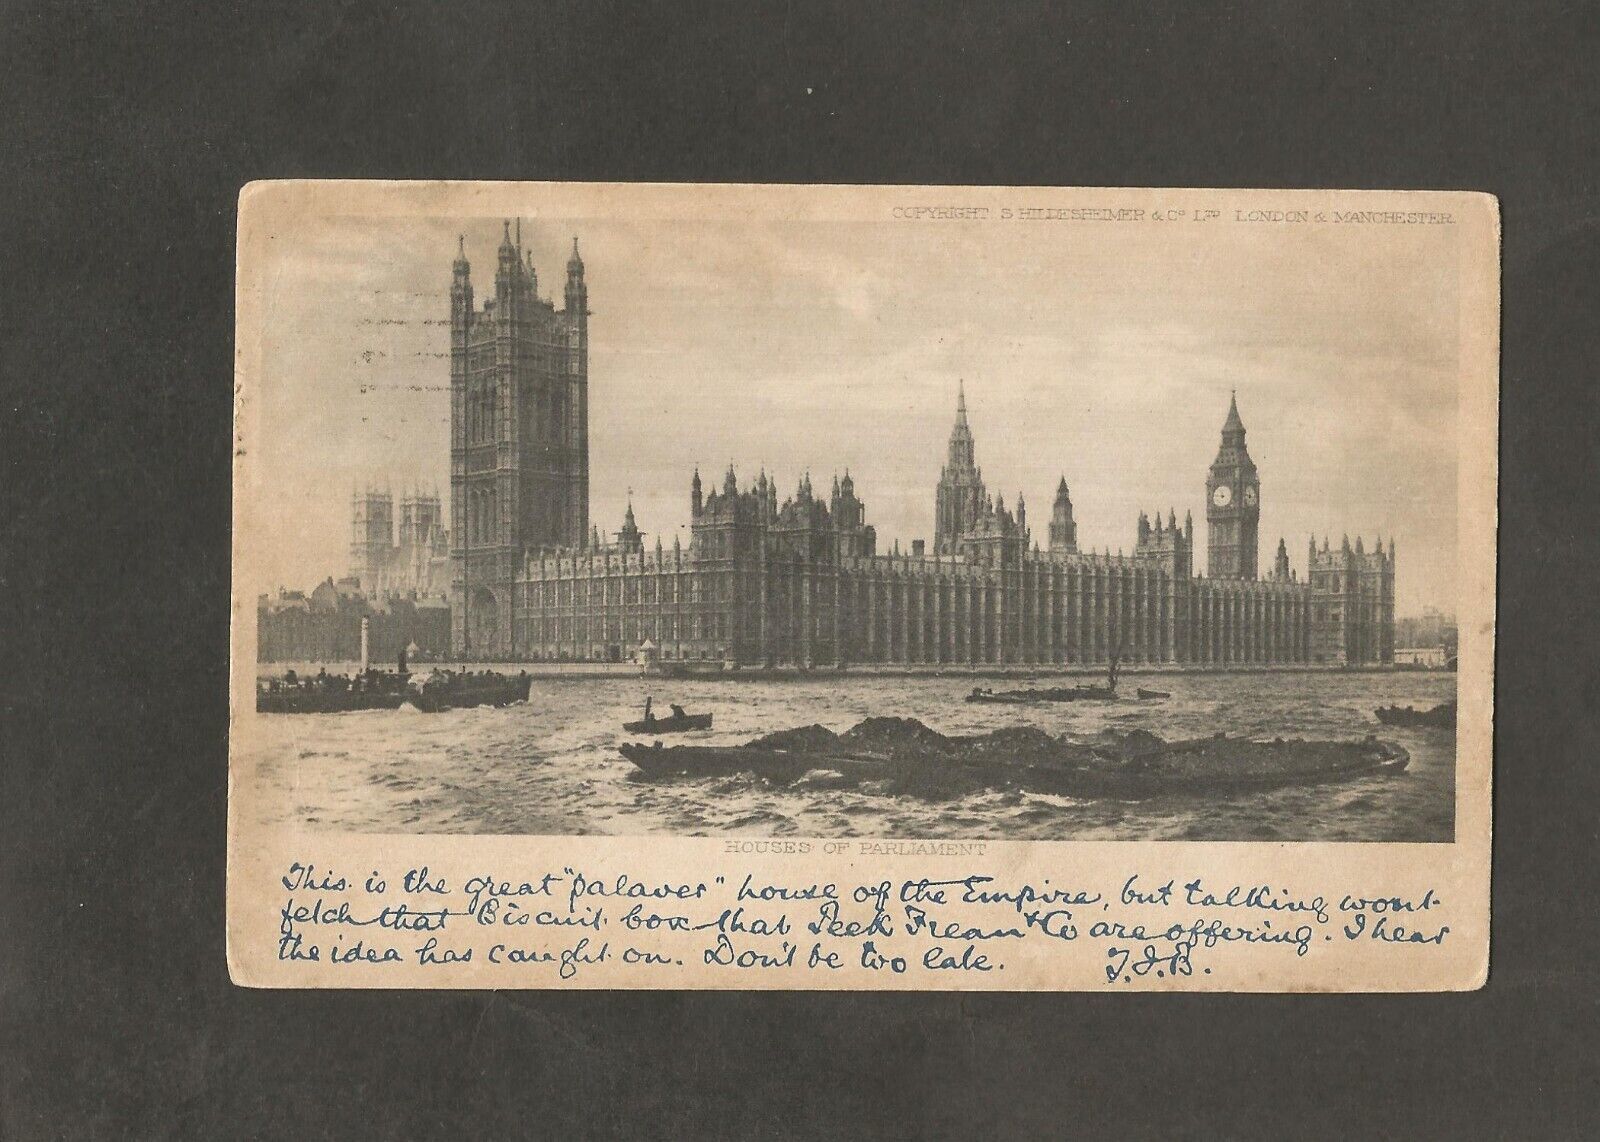 COPYRIGHT S HILDESHEIMER & Co LTD LONDON & MANCHESTER.
HOUSES OF PARLIAMENT
This is the great "palaver" house of the Empire, but talking wont
fetch that Biscuit box that Peek Frean & Co are offering. I hear
the idea has caught on. Don't be too late. T.J.B.